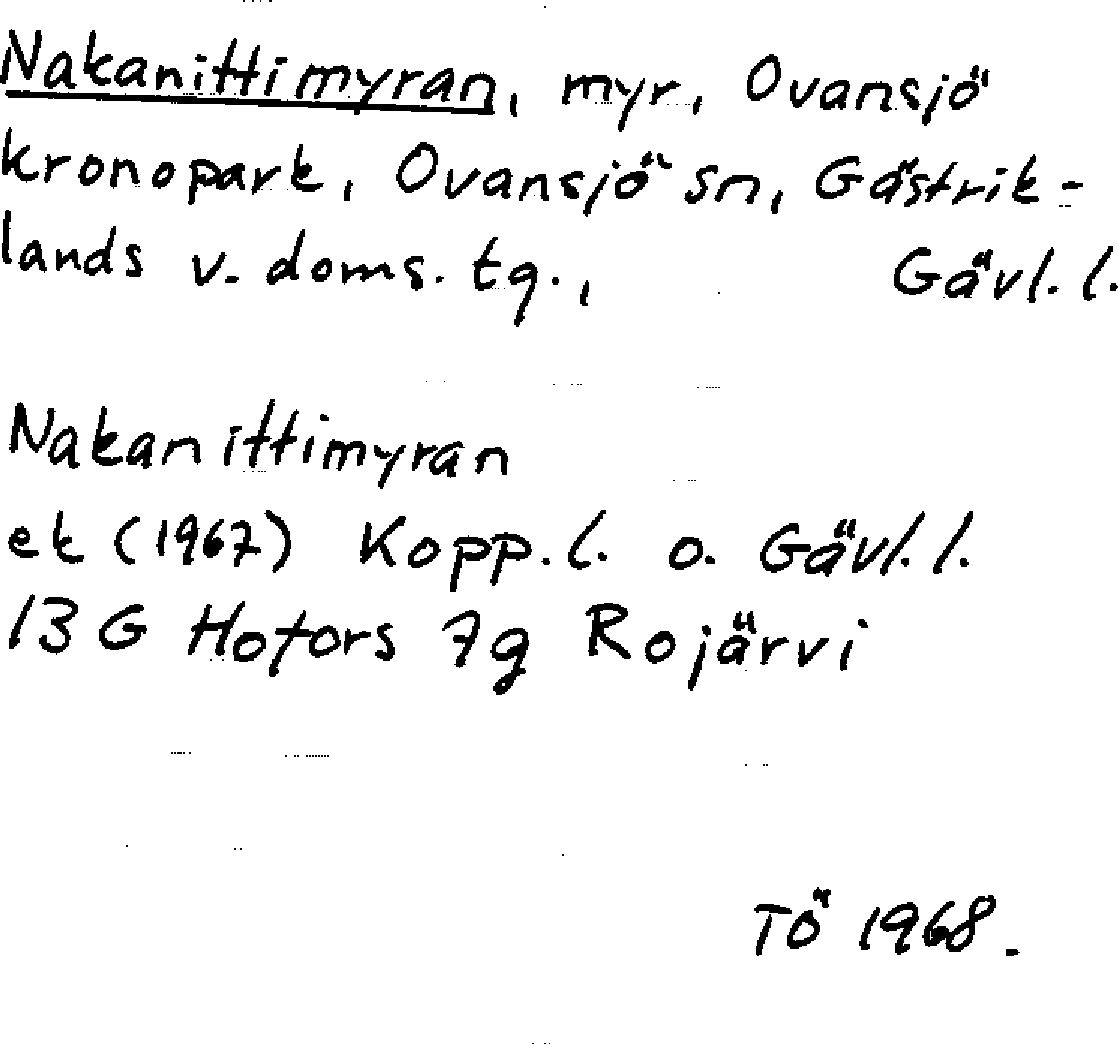 Nakanittimyran, myr, Ovansjö
kronopark, Ovansjö sn, Gästrik-
lands v. doms. tg., Gävl. l.
Nakanittimyran
ek (1967) Kopp. l. o. Gävl. l.
13 G Hofors 7g Rojärvi
TÖ 1968.